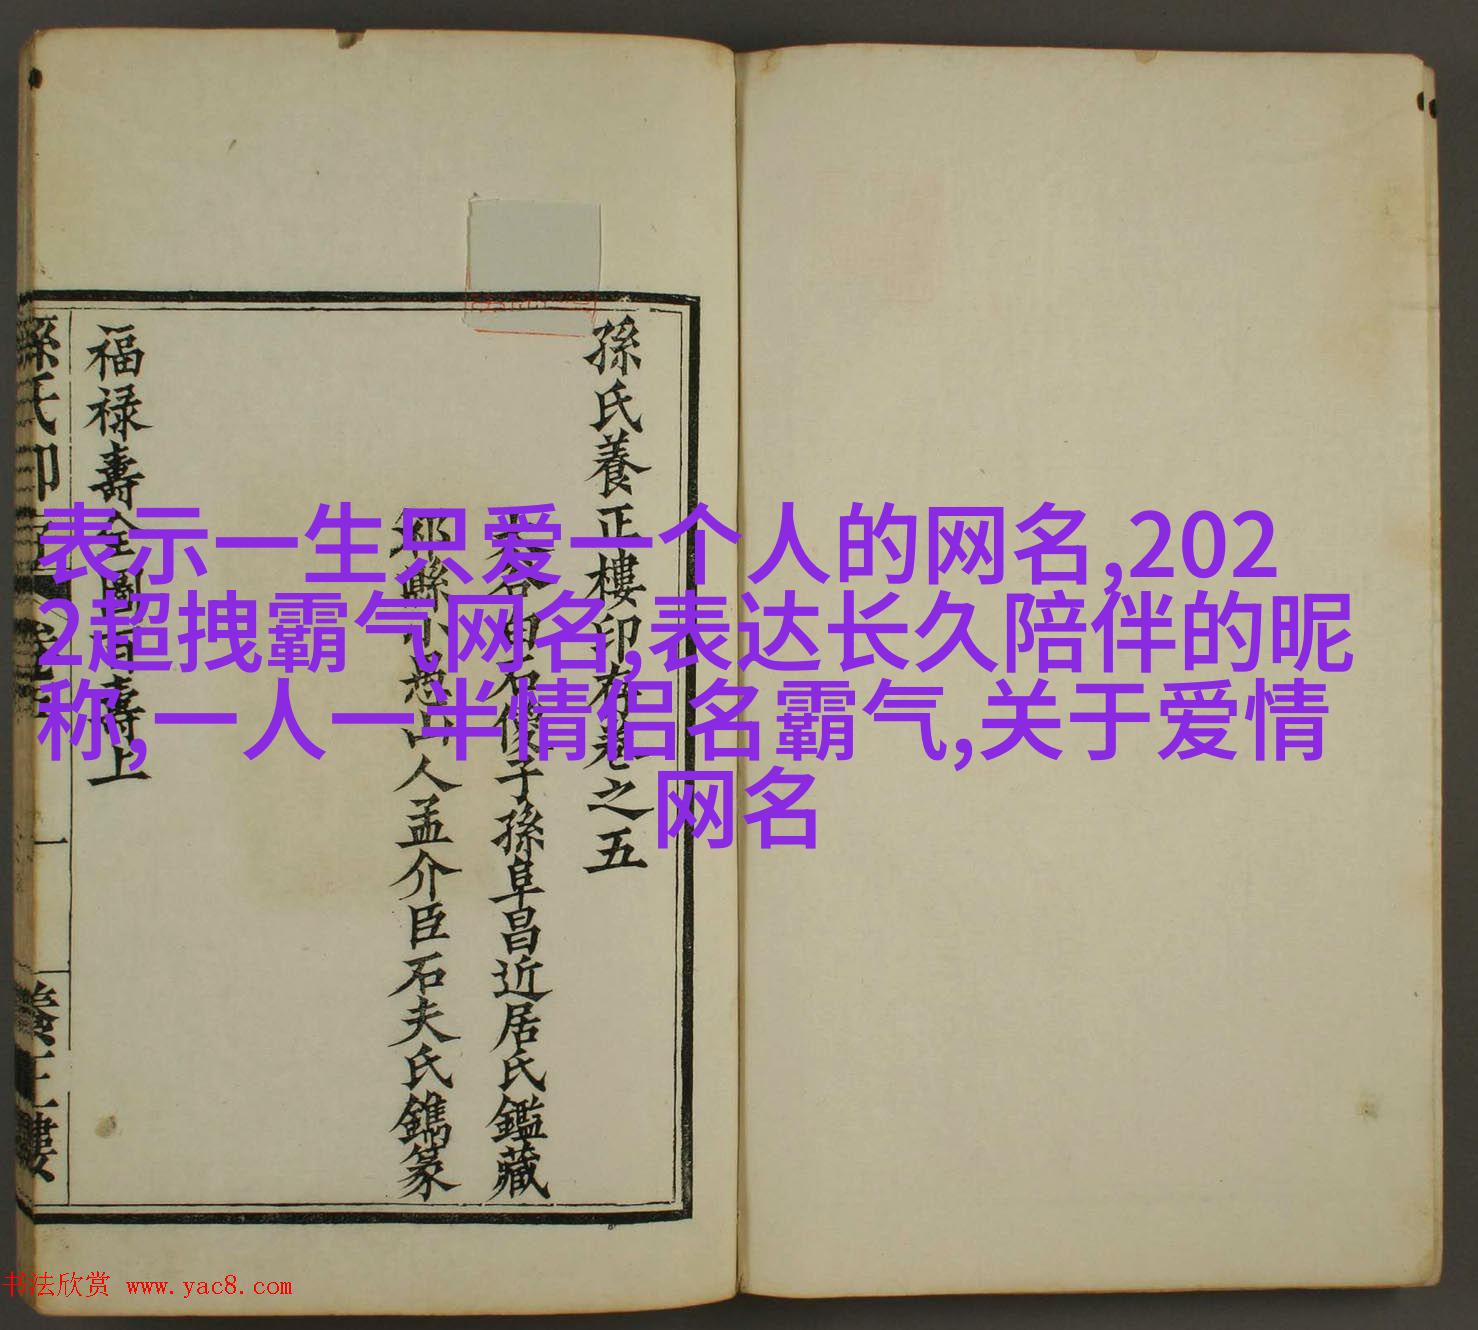 表示一生只爱一个人的网名,202
2超拽霸气网名,表达长久陪伴的昵
称,一人一半情侣名霸气,关于爱情
网名
孫氏養正樓印存卷之五
子孫阜昌近居氏鑑藏
人孟介臣石夫氏鐫篆
福禄壽
上
孫氏印
一
養正樓
书法欣赏 www.yac8.com